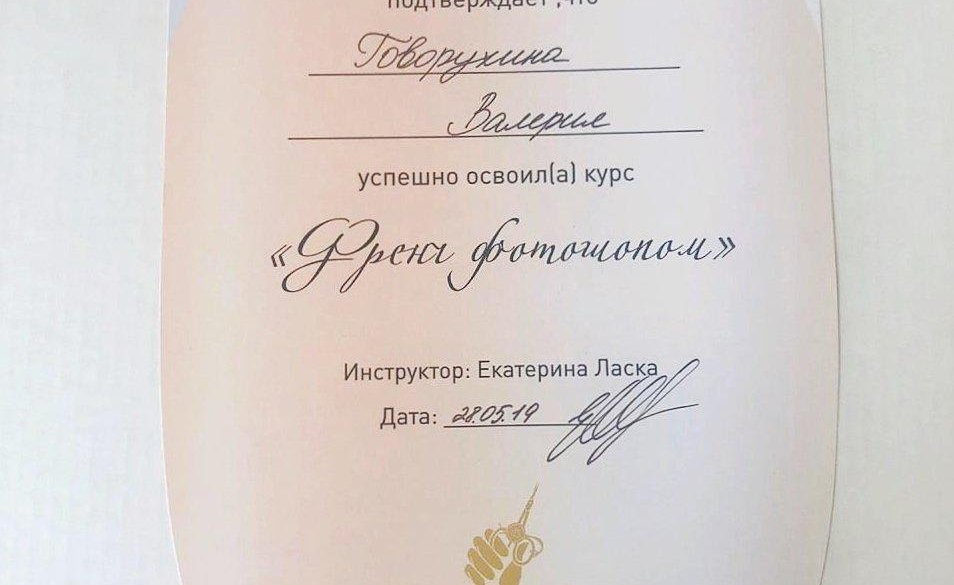 подтверждает ,что
Говорухина
Валерия
успешно освоил(а) курс
«Френч фотошопом»
Инструктор: Екатерина Ласка
Дата: 28.05.19